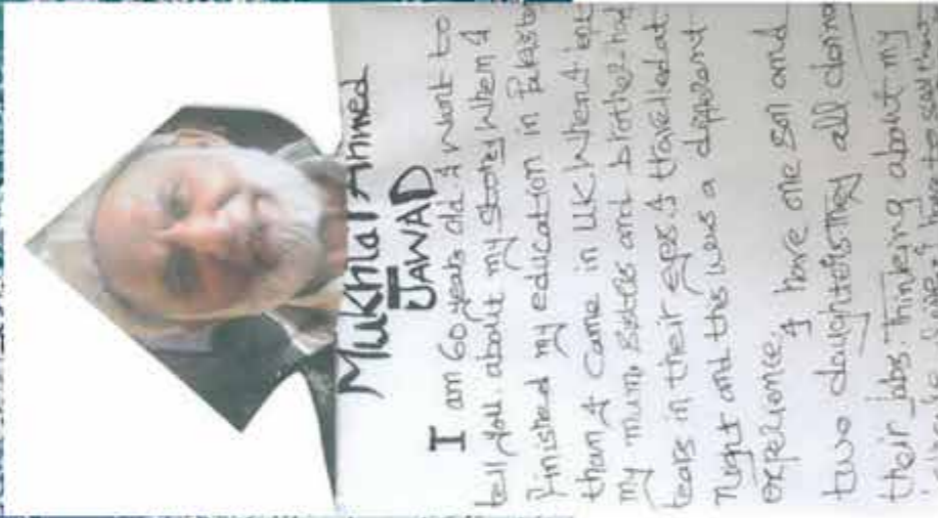 Mukhtar Ahmed
JAWAD
I am 60 years old I want to
tell you about my story when I
finished my education in Pakista
than I came in UK when I left
my mum, sisters and brother had
tears in their eyes. I travelled at
night and this was a different
experience.
I have one son and
two daughters they all doing
their jobs. Thinking about my
I have to say that